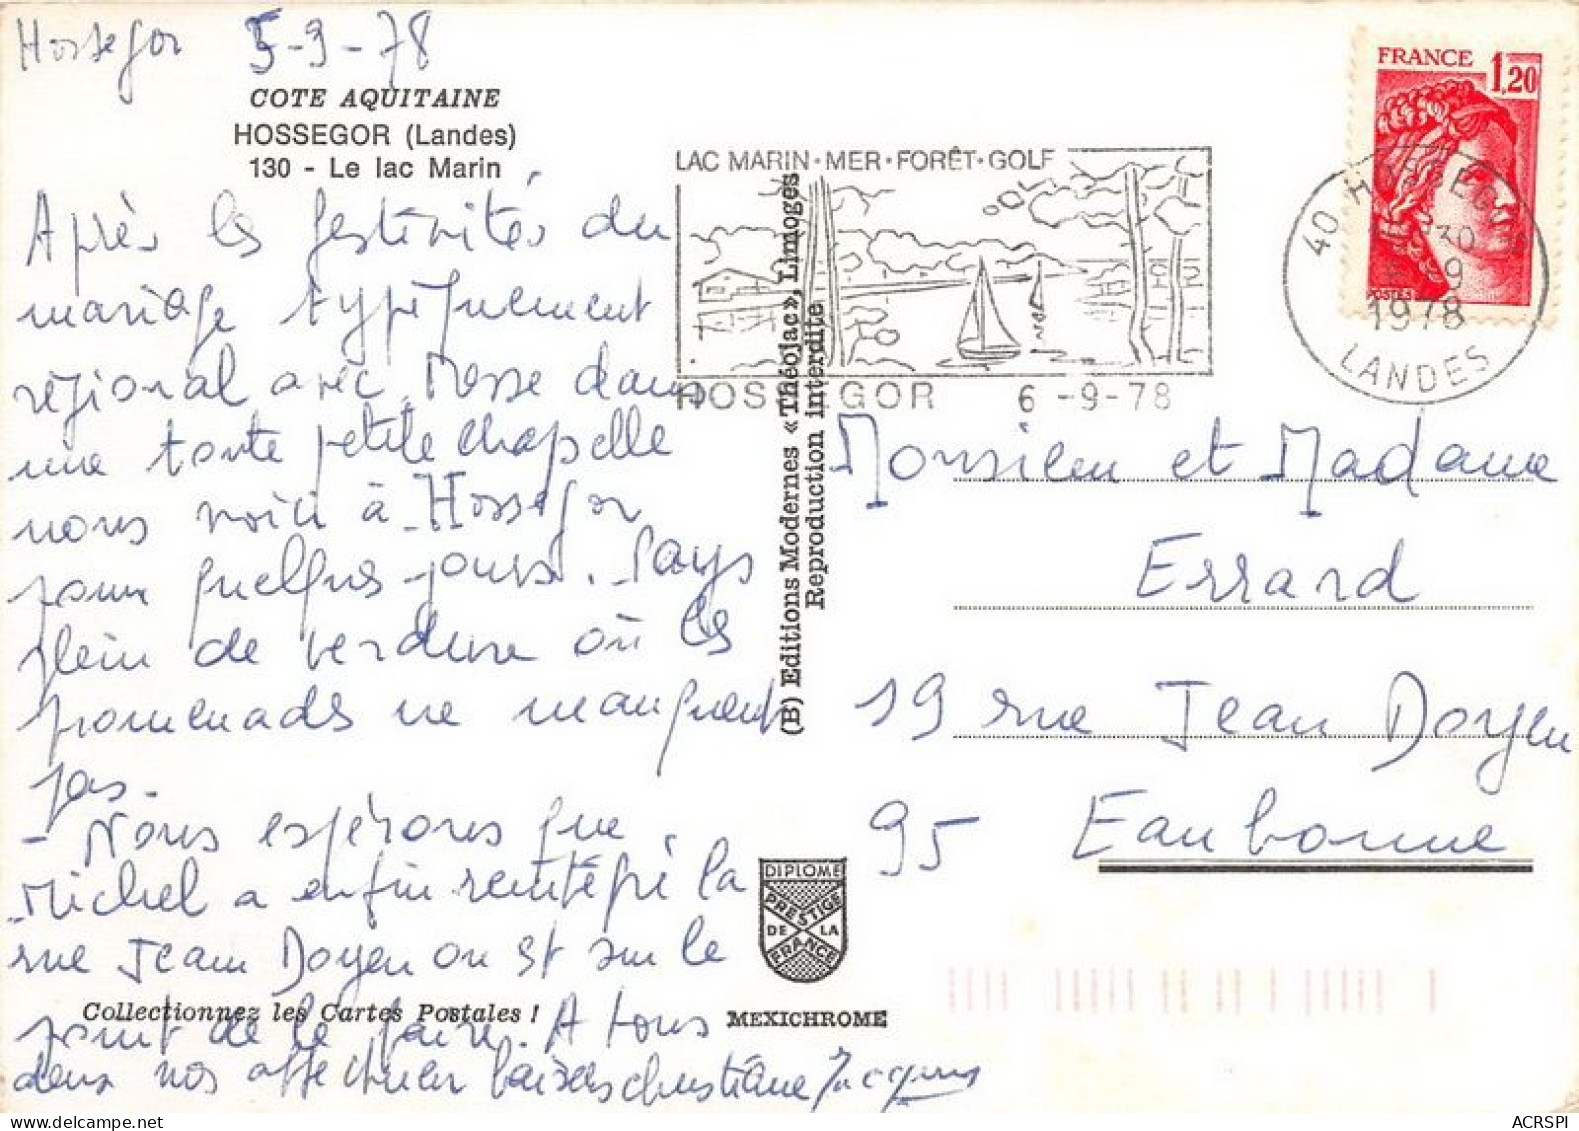 Hossegor 5-9-78
COTE AQUITAINE
HOSSEGOR (Landes)
130 - Le lac Marin
Après les festivités du
mariage typiquement
régional avec Messe dans
une toute petite chapelle
nous voici à Hossegor
pour quelques jours. Pays
plein de verdure où les
promenades ne manquent
pas.
- Nous espérons que
Michel a enfin réintégré la
rue Jean Doyen ou est sur le
point de le faire. A tous
deux nos affectueux baisers Christiane Jacques
Collectionnez les Cartes Postales !
(B) Editions Modernes «Théojac», Limoges
Reproduction interdite
LAC MARIN·MER·FORÊT·GOLF
HOSSEGOR 6-9-78
FRANCE 1,20
POSTES
40 HOSSEGOR
30
6-9
1978
LANDES
Monsieur et Madame
Errard
19 rue Jean Doyen
95 Eaubonne
DIPLOME
PRESTIGE
DE LA
FRANCE
MEXICHROME
ACRSPI